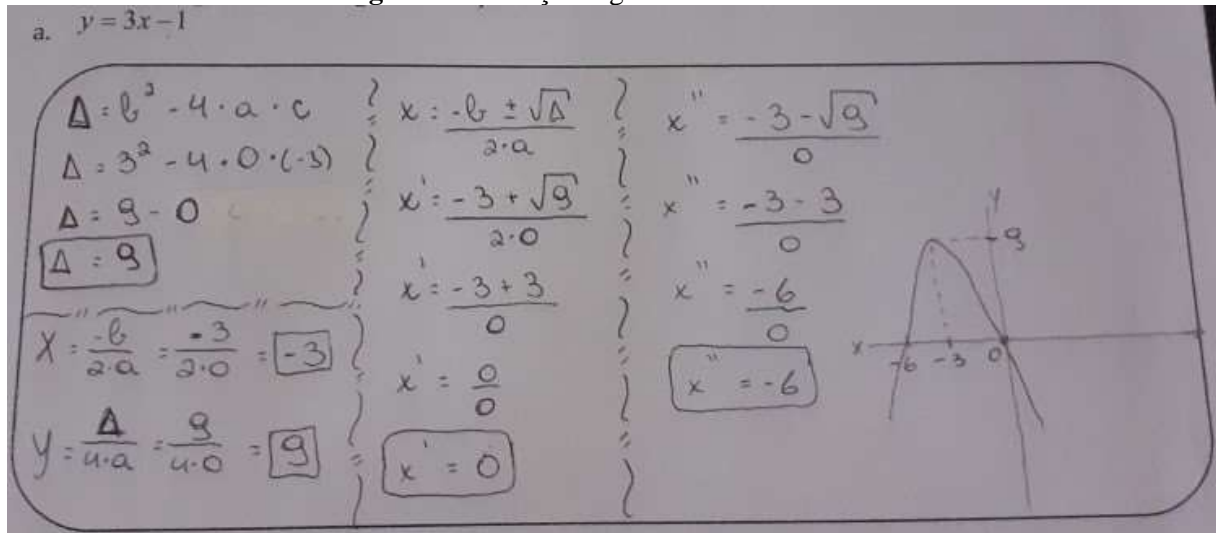 a. y = 3x – 1
Δ = b² - 4 · a · c
Δ = 3² - 4 · 0 · (-1)
Δ = 9 - 0
Δ = 9
X = -b/2·a = -3/2·0 = -3
y = Δ/4·a = 9/4·0 = 9
x = -b ± √Δ/2·a
x' = -3 + √9/2·0
x' = -3 + 3/0
x' = 0/0
x' = 0
x'' = -3 - √9/0
x'' = -3 - 3/0
x'' = -6/0
x'' = -6
y
9
x -6 -3 0